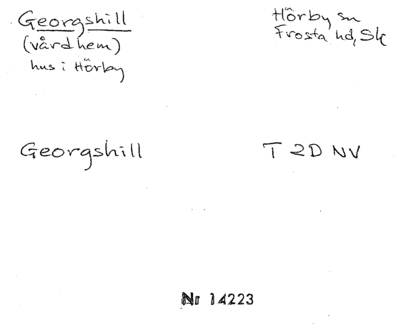 Georgshill
(vårdhem)
hus i Hörby
Hörby sn
Frosta hd, Sk
Georgshill
T 2D NV
Nr 14223